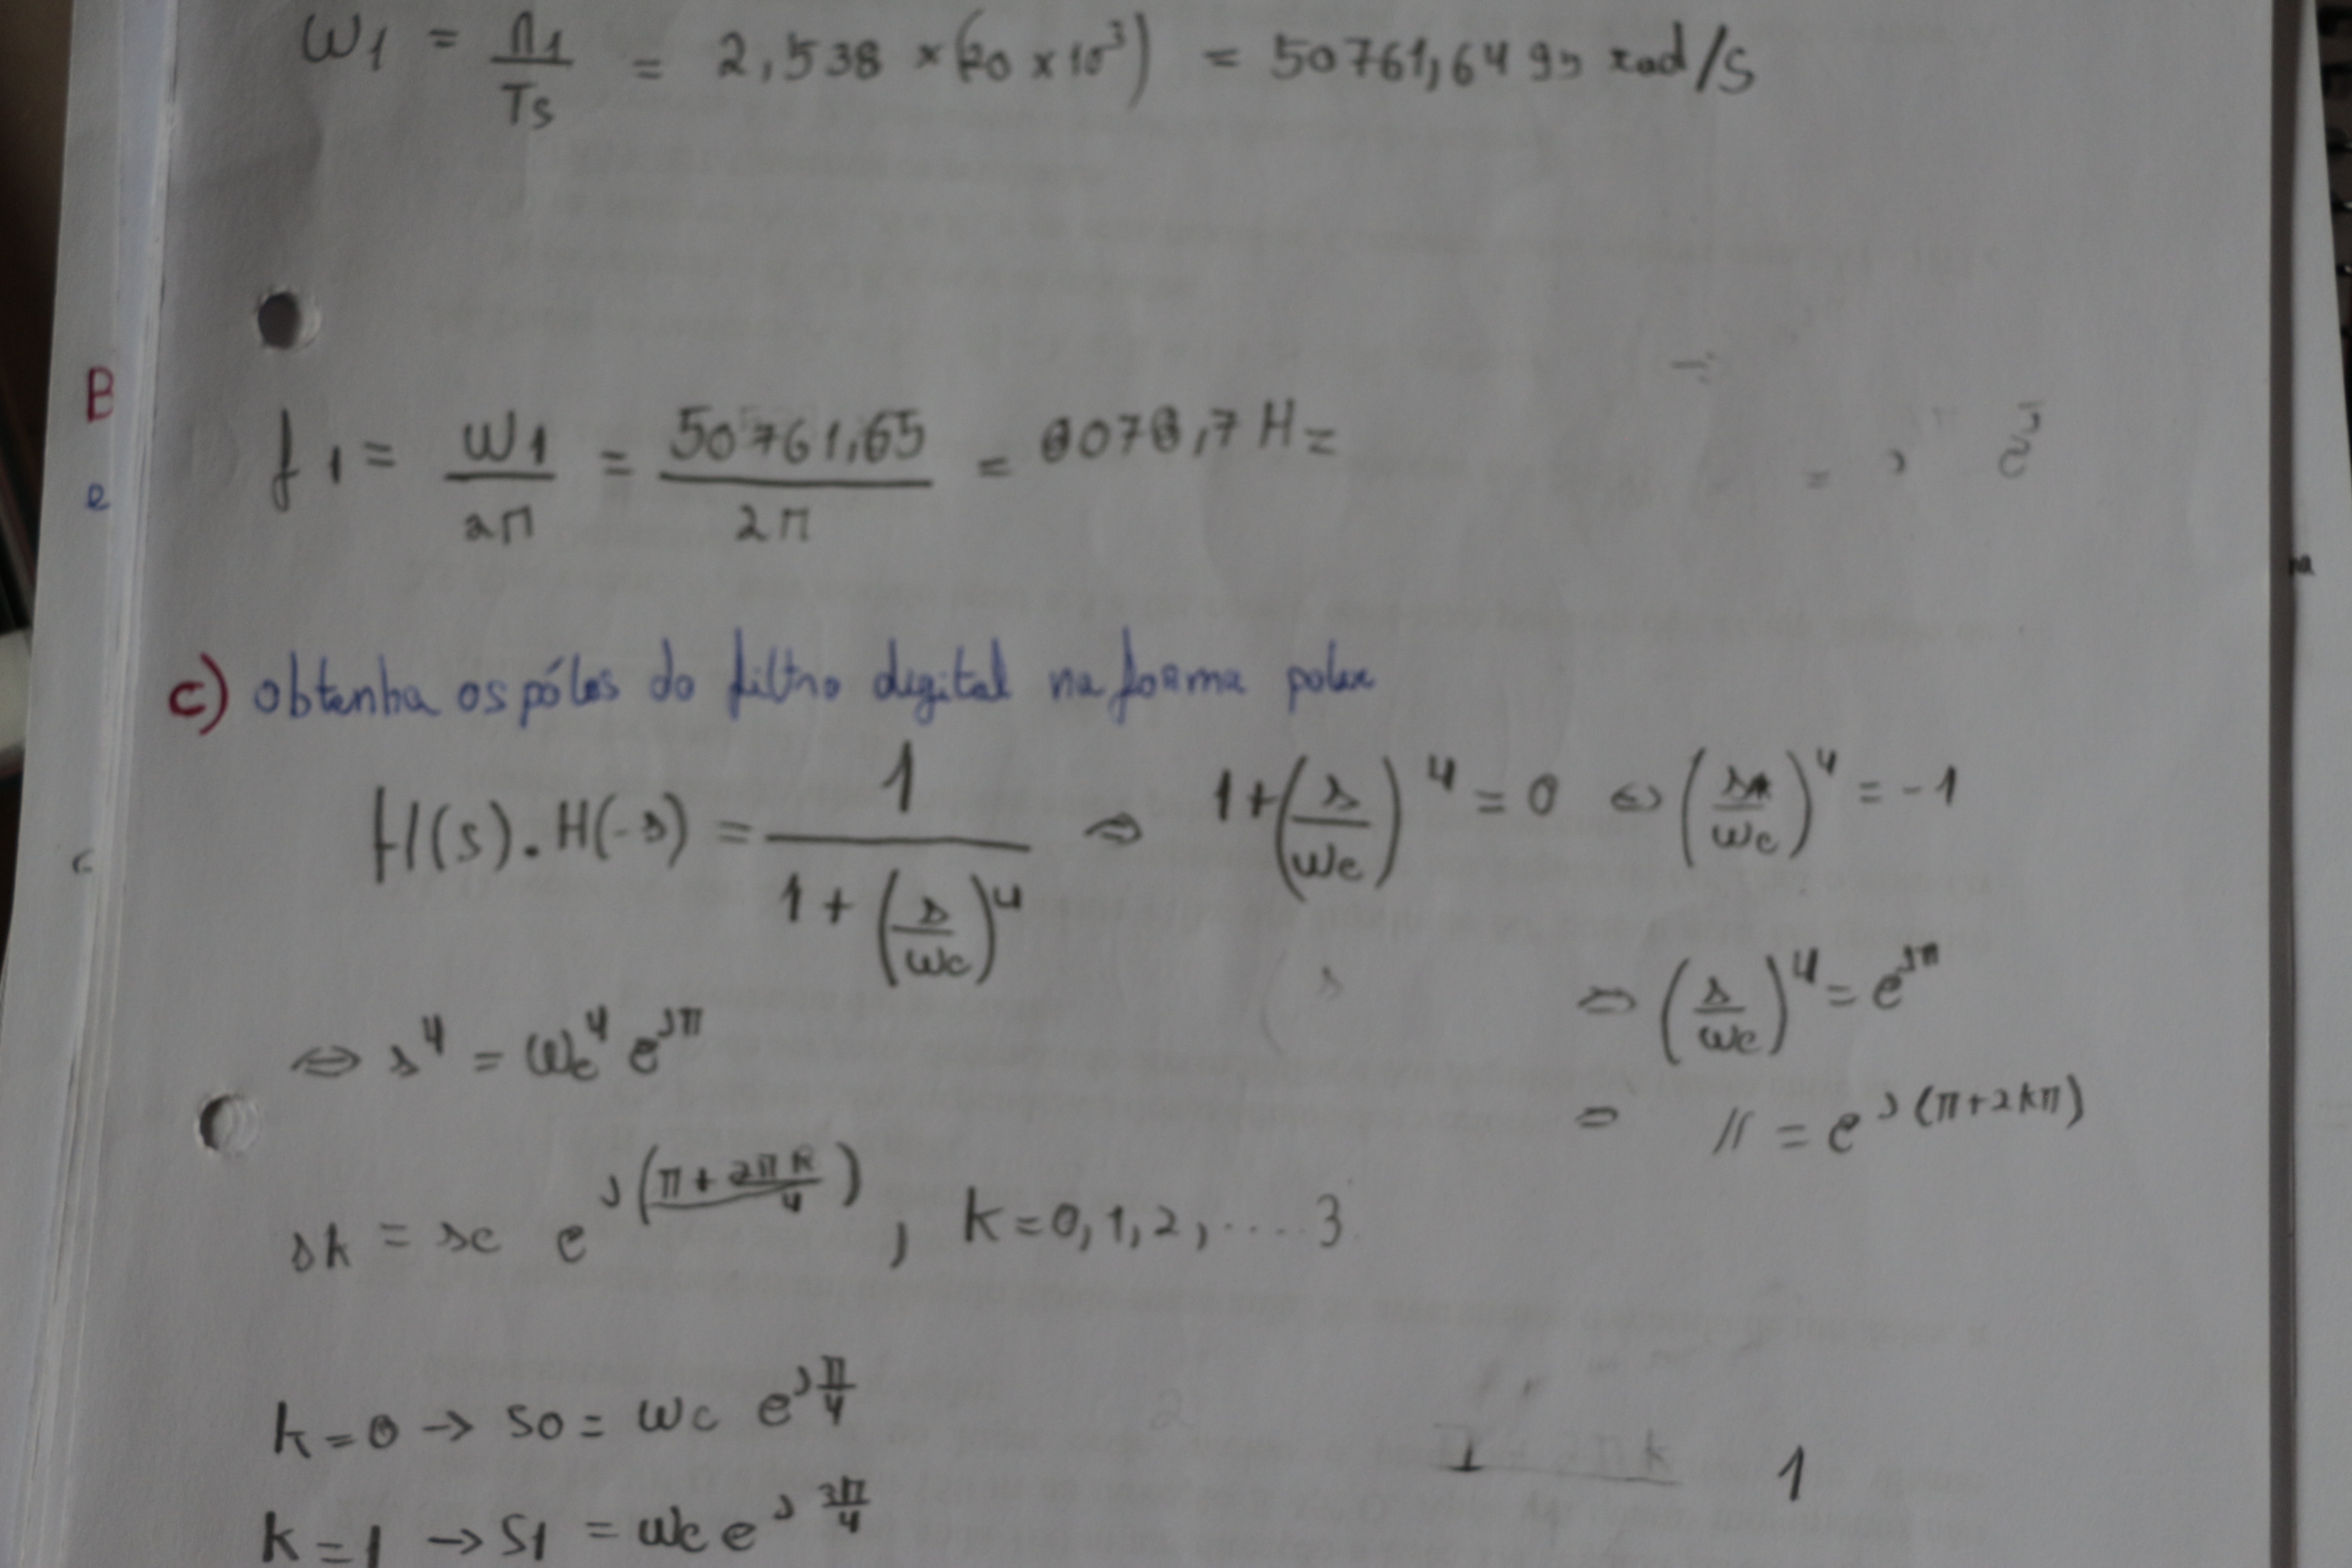 ω1 = Ω1/Ts = 2,538 × (20 × 10³) = 50761,6495 rad/s
B
f1 = ω1/2π = 50761,65/2π = 8078,7 Hz
e
c) obtenha os pólos do filtro digital na forma polar
H(s) . H(-s) = 1/(1 + (s/ωc)⁴) ⇔ 1+(s/ωc)⁴ = 0 ⇔ (s/ωc)⁴ = -1
⇔ (s/ωc)⁴ = e^(jπ)
⇔ s⁴ = ωc⁴ e^(jπ)
= // = e^(j(π+2kπ))
sk = sc e^(j(π + 2πk/4)), k = 0, 1, 2, .... 3
k = 0 → s0 = ωc e^(jπ/4)
1
k = 1 → s1 = ωc e^(j3π/4)